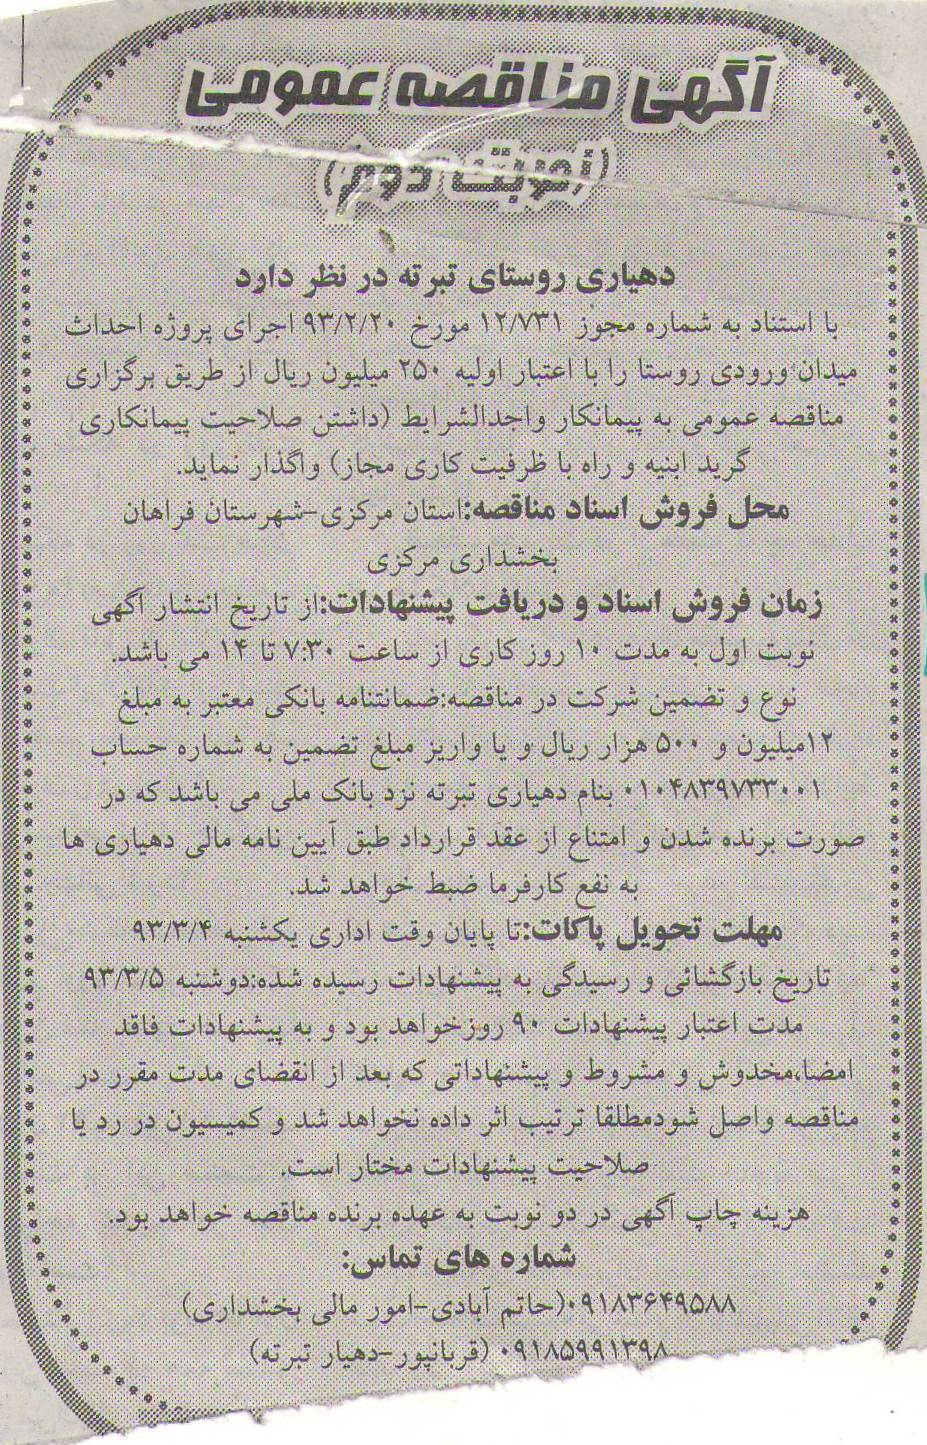 آگهی مناقصه عمومی
(نوبت دوم)
دهیاری روستای تبرته در نظر دارد
با استناد به شماره مجوز ۱۲/۷۳۱ مورخ ۹۳/۲/۲۰ اجرای پروژه احداث
میدان ورودی روستا را با اعتبار اولیه ۲۵۰ میلیون ریال از طریق برگزاری
مناقصه عمومی به پیمانکار واجدالشرایط (داشتن صلاحیت پیمانکاری
گرید ابنیه و راه با ظرفیت کاری مجاز) واگذار نماید.
محل فروش اسناد مناقصه:استان مرکزی-شهرستان فراهان
بخشداری مرکزی
زمان فروش اسناد و دریافت پیشنهادات:از تاریخ انتشار آگهی
نوبت اول به مدت ۱۰ روز کاری از ساعت ۷:۳۰ تا ۱۴ می باشد.
نوع و تضمین شرکت در مناقصه:ضمانتنامه بانکی معتبر به مبلغ
۱۲میلیون و ۵۰۰ هزار ریال و یا واریز مبلغ تضمین به شماره حساب
۰۱۰۴۸۳۹۷۳۳۰۰۱ بنام دهیاری تبرته نزد بانک ملی می باشد که در
صورت برنده شدن و امتناع از عقد قرارداد طبق آیین نامه مالی دهیاری ها
به نفع کارفرما ضبط خواهد شد.
مهلت تحویل پاکات:تا پایان وقت اداری یکشنبه ۹۳/۳/۴
تاریخ بازگشائی و رسیدگی به پیشنهادات رسیده شده:دوشنبه ۹۳/۳/۵
مدت اعتبار پیشنهادات ۹۰ روزخواهد بود و به پیشنهادات فاقد
امضا،مخدوش و مشروط و پیشنهاداتی که بعد از انقضای مدت مقرر در
مناقصه واصل شودمطلقا ترتیب اثر داده نخواهد شد و کمیسیون در رد یا
صلاحیت پیشنهادات مختار است.
هزینه چاپ آگهی در دو نوبت به عهده برنده مناقصه خواهد بود.
شماره های تماس:
۰۹۱۸۳۶۴۹۵۸۸(حاتم آبادی-امور مالی بخشداری)
۰۹۱۸۵۹۹۱۳۹۸ (قربانپور-دهیار تبرته)